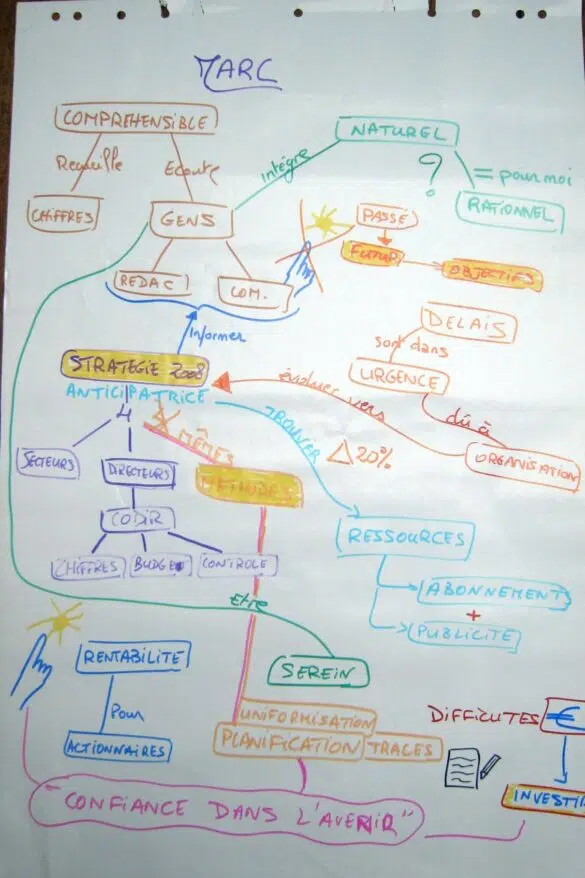 MARC
COMPREHENSIBLE
NATUREL
Recueille
Ecoute
Intègre
?
= pour moi
CHIFFRES
GENS
PASSÉ
RATIONNEL
FUTUR
OBJECTIFS
REDAC
COM.
DELAIS
Informer
sont dans
STRATEGIE 2008
URGENCE
ANTICIPATRICE
évoluer vers
dû à
4
TROUVER
MÊMES
20%
SECTEURS
DIRECTEURS
ORGANISATION
METHODES
CODIR
RESSOURCES
CHIFFRES
BUDGET
CONTROLE
ABONNEMENT
Etre
+
PUBLICITE
RENTABILITE
SEREIN
Pour
UNIFORMISATION
DIFFICUTES
€
ACTIONNAIRES
PLANIFICATION
TRACES
INVESTIR
"CONFIANCE DANS L'AVENIR"